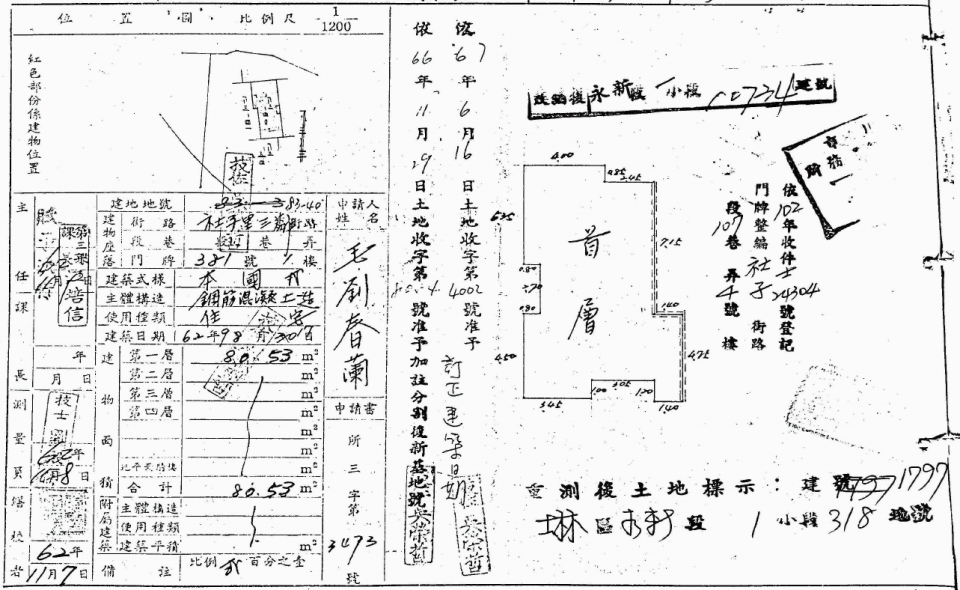 位置圖 比例尺 1/1200
紅色部份係建物位置
主任課長
測量員
年
月 日
技士劉
62年
11月7日
建地地號 83-40
建物座落 街路 社子里三鄰 街路
段巷 段 巷 弄
門牌 381 號 1 樓
建築式樣 本國式
主體構造 鋼筋混凝土造
使用種類 住宅
建築日期 62年9月30日
建物面積
第一層 80.53 m²
第二層 m²
第三層 m²
第四層 m²
m²
m²
m²
合計 80.53 m²
附屬建築
主體構造
使用種類
建築平積 m²
備註 比例 百分之壹
申請人姓名
毛劉春蘭
申請書
所三字第3473號
依66年11月29日土地收字第 號准予加註分割後新基地號
吳榮哲
依67年6月16日土地收字第4002號准予訂正建築日期
吳榮哲
改編後永新段一小段00734建號
依102年收件士 24304號登記
門牌整編社子街路
段107巷 弄4號 樓
首層
4.00
0.85
2.45
6.25
7.15
0.80
0.80
1.40
4.50
4.75
3.45
1.00
2.05
1.20
1.40
重測後土地標示：建號1797
士林區永新段1小段318地號